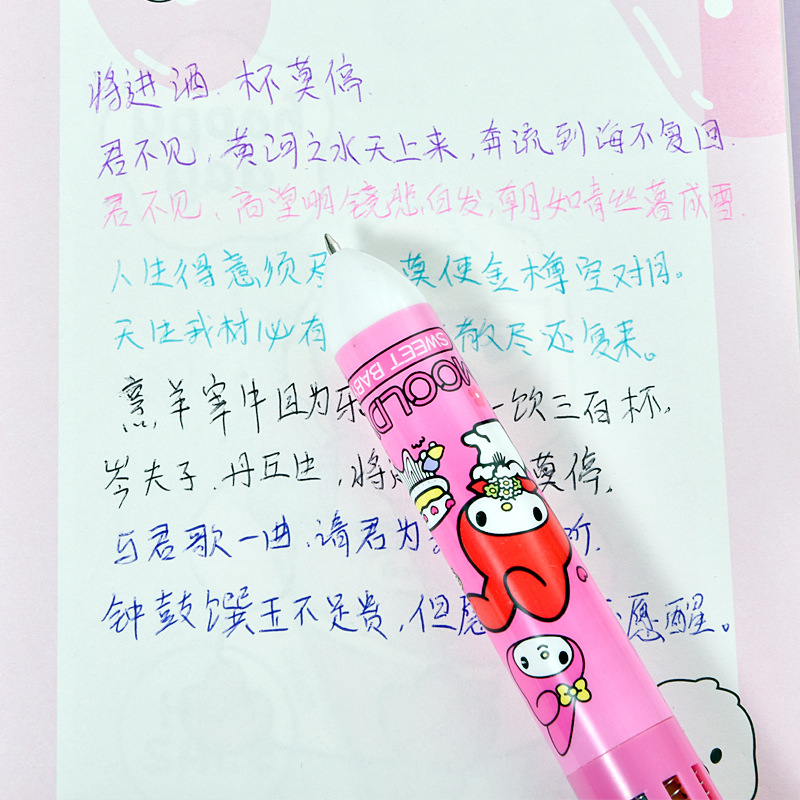 将进酒.杯莫停.
君不见,黄河之水天上来,奔流到海不复回.
君不见,高堂明镜悲白发,朝如青丝暮成雪.
人生得意须尽 莫使金樽空对月。
天生我材必有 散尽还复来。
烹羊宰牛且为乐 一饮三百杯.
岑夫子.丹丘生,将进 莫停.
与君歌一曲.请君为 听.
钟鼓馔玉不足贵,但愿 愿醒。
SWEET BAB
MOOLD